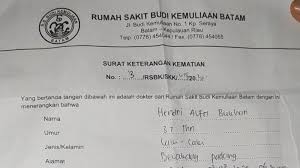 RUMAH SAKIT BUDI KEMULIAAN BATAM
Jl. Budi Kemuliaan No. 1 Kp. Seraya
Batam - Kepulauan Riau
SURAT KETERANGAN KEMATIAN
No. 3 /RSBK/SKK/ 20
Yang bertanda tangan dibawah ini adalah dokter dari Rumah Sakit Budi Kemuliaan Batam dengan ini
menerangkan bahwa
Nama : Hendri Alfet
Umur : 37 Thn
Jenis/Kelamin : Laki - Laki
Alamat